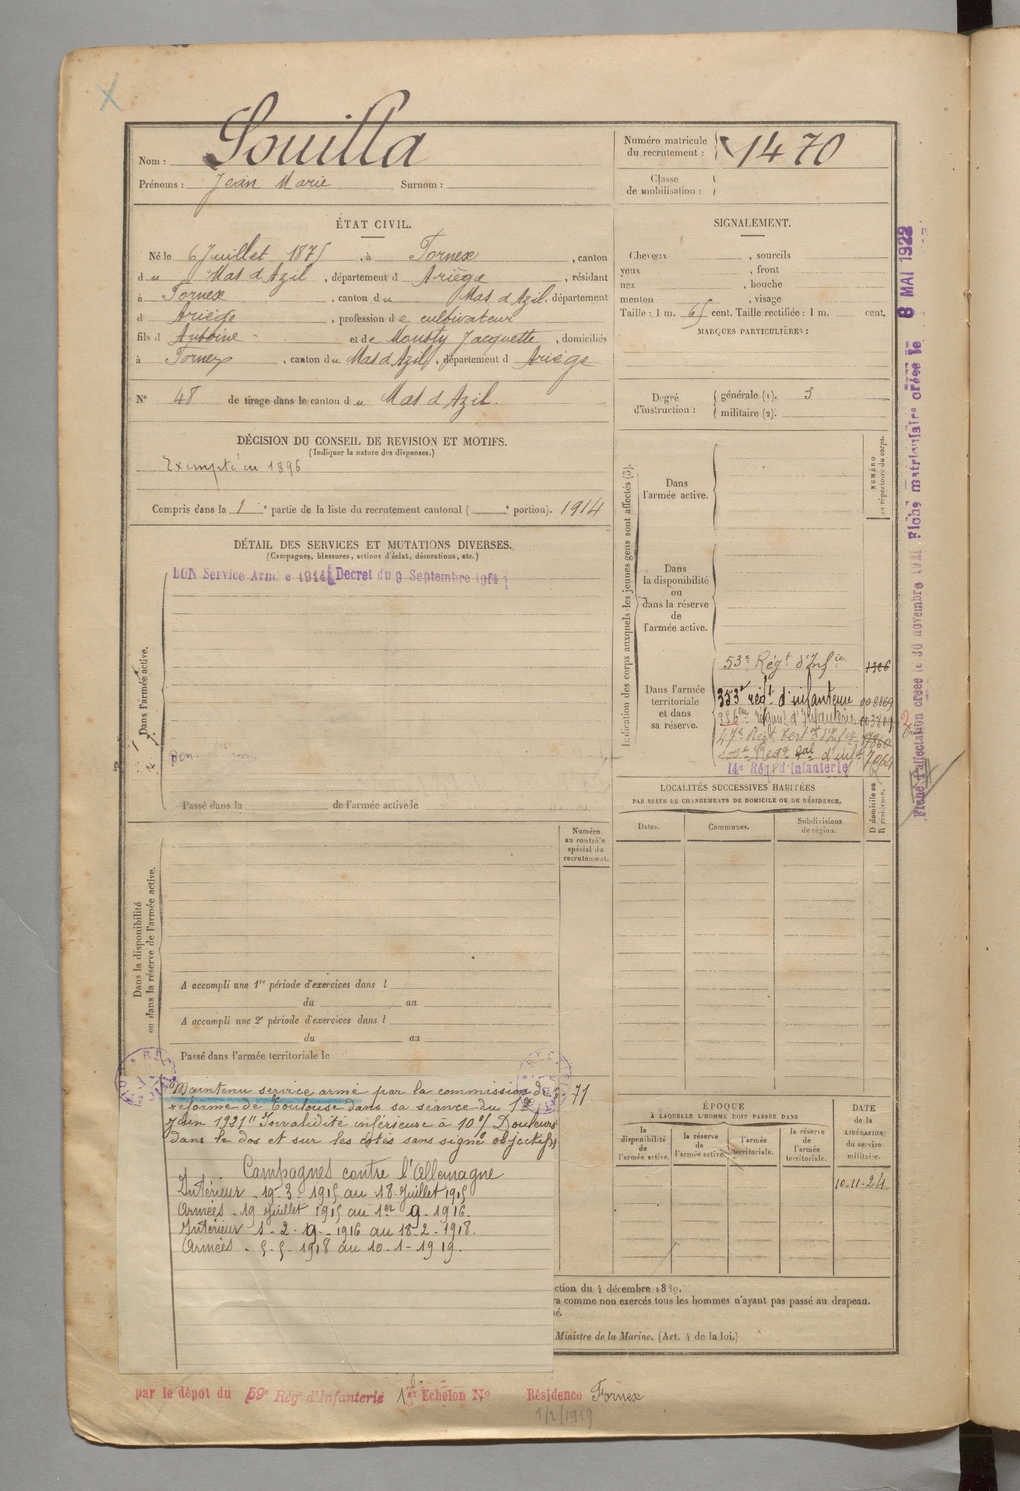 Nom : Souilla
Prénoms : Jean Marie Surnom :
Numéro matricule du recrutement : 1470
Classe de mobilisation :
ÉTAT CIVIL.
Né le 6 Juillet 1875, à Fornex, canton
du Mas d'Azil, département d Ariège, résidant
à Fornex, canton du Mas d'Azil, département
d Ariège, profession de cultivateur
fils d Antoine et de Mousty Jacquette, domiciliés
à Fornex, canton du Mas d'Azil, département d Ariège
N° 48 de tirage dans le canton du Mas d'Azil.
SIGNALEMENT.
Cheveux , sourcils
yeux , front
nez , bouche
menton , visage
Taille : 1 m. 65 cent. Taille rectifiée : 1 m. cent.
MARQUES PARTICULIÈRES :
Degré d'instruction : générale (1). 3
militaire (2).
DÉCISION DU CONSEIL DE REVISION ET MOTIFS.
(Indiquer la nature des dispenses.)
Exempté en 1896
Compris dans la 1e partie de la liste du recrutement cantonal ( e portion). 1914
DÉTAIL DES SERVICES ET MUTATIONS DIVERSES.
(Campagnes, blessures, actions d'éclat, décorations, etc.)
BON Service Armée 1914 Decret du 9 Septembre 1914
Dans l'armée active.
Passé dans la de l'armée active le
Indication des corps auxquels les jeunes gens sont affectés (3).
NUMÉRO au répertoire du corps.
Dans l'armée active.
Dans la disponibilité ou dans la réserve de l'armée active.
Dans l'armée territoriale et dans sa réserve.
53e Régt d'Infie
353e régt d'infanterie
14e Régt d'Infanterie
LOCALITÉS SUCCESSIVES HABITÉES
PAR SUITE DE CHANGEMENTS DE DOMICILE OU DE RÉSIDENCE.
Dates. Communes. Subdivisions de région. D domicile ou R résidence.
Dans la disponibilité ou dans la réserve de l'armée active.
Numéro au contrôle spécial du recrutement.
A accompli une 1re période d'exercices dans l
du au
A accompli une 2e période d'exercices dans l
du au
Passé dans l'armée territoriale le
71
Maintenu service armé par la commission de
réforme de Toulouse dans sa séance du 1er
juin 1921 "Invalidité inférieure à 10 % Douleurs
dans le dos et sur les côtés sans signe objectifs
Campagnes contre l'Allemagne
Intérieur 19-3-1915 au 18 Juillet 1915
Armées 19 Juillet 1915 au 1er 9 1916.
Intérieur 1-2-9-1916 au 18-2-1918.
Armées 5-5 1918 au 10-1-1919.
ÉPOQUE
À LAQUELLE L'HOMME DOIT PASSER DANS
la disponibilité de l'armée active. la réserve de l'armée active. l'armée territoriale. la réserve de l'armée territoriale.
DATE de la LIBÉRATION du service militaire.
10-11-24
ction du 4 décembre 1889.
ra comme non exercés tous les hommes n'ayant pas passé au drapeau.
Ministre de la Marine. (Art. 4 de la loi.)
par le dépot du 59e Régt d'Infanterie 1er Echelon No Résidence Fornex
1/2/1919
Fiche d'affectation créée le 30 novembre 1921 Fiche matriculaire créée le 8 MAI 1922